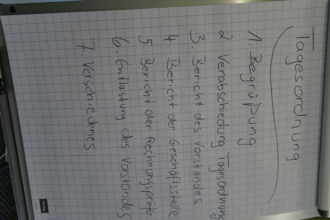 Tagesordnung
1. Begrüßung
2 Verabschiedung Tagesordnung
3. Bericht des Vorstandes
4 Bericht der Geschäftsstelle
5 Bericht der Rechnungsprüfer
6 Entlastung des Vorstandes
7 Verschiedenes